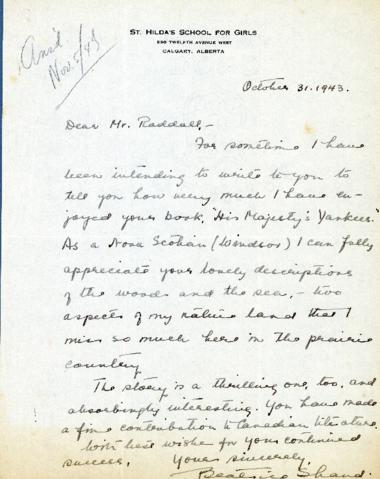 Ans'd
Nov. 5/43
ST. HILDA'S SCHOOL FOR GIRLS
TWELFTH AVENUE WEST
CALGARY, ALBERTA
October 31. 1943.
Dear Mr. Raddall,-
For sometime I have
been intending to write to you to
tell you how very much I have en-
joyed your book, "His Majesty's Yankees."
As a Nova Scotian (Windsor) I can fully
appreciate your lovely descriptions
of the woods and the sea, - two
aspects of my native land that I
miss so much here in the prairie
country.
The story is a thrilling one, too, and
absorbingly interesting. You have made
a fine contribution to Canadian literature.
With best wishes for your continued
success,
Yours sincerely,
Beatrice Shand.